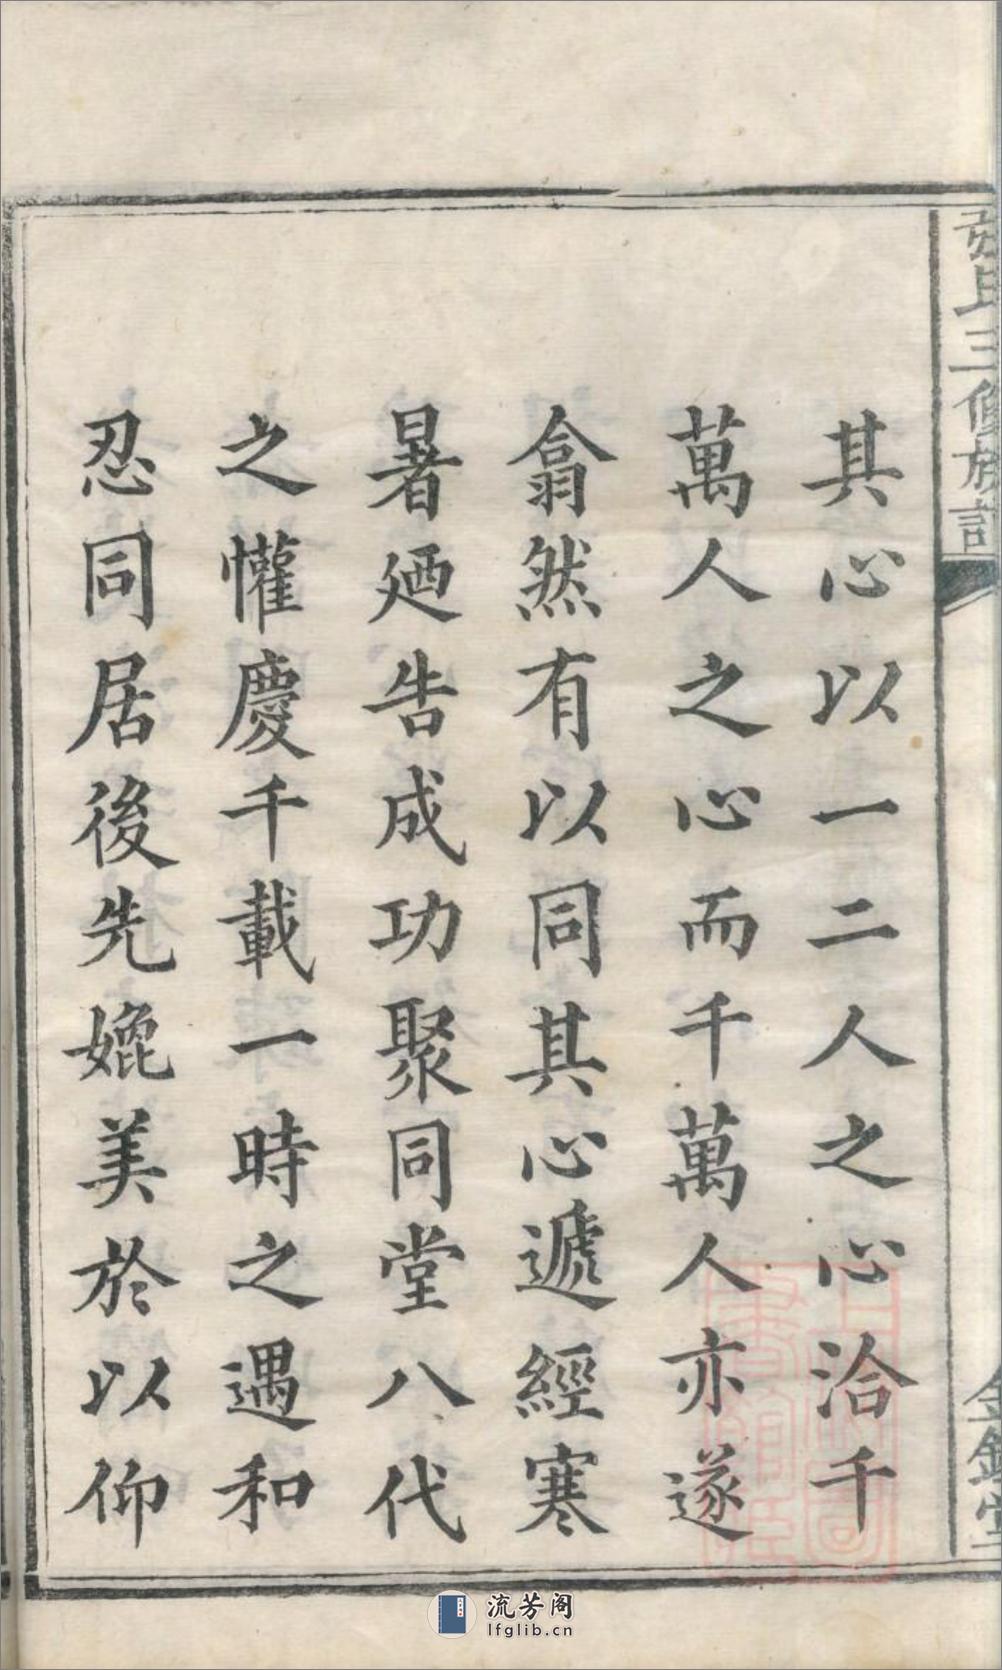 其心以一二人之心洽千
萬人之心而千萬人亦遂
翕然有以同其心遞經寒
暑廼告成功聚同堂八代
之懽慶千載一時之遇和
忍同居後先媲美於以仰
氏三修族譜
金鑑堂
流芳阁
lfglib.cn